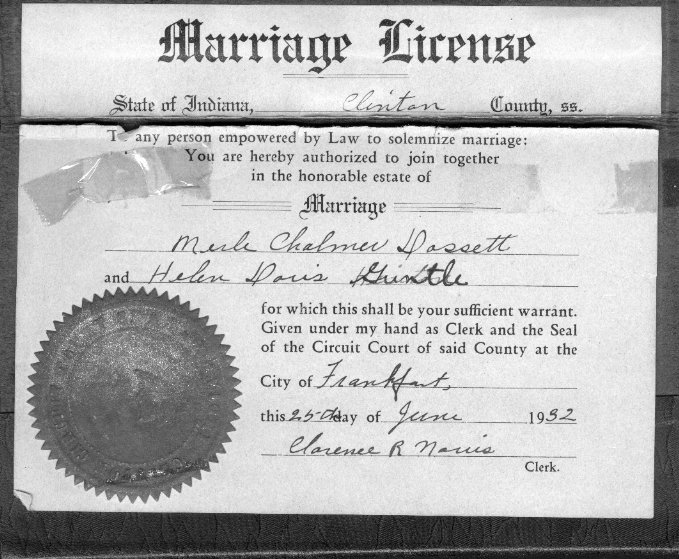 Marriage License
State of Indiana, Clinton County, ss.
To any person empowered by Law to solemnize marriage:
You are hereby authorized to join together
in the honorable estate of
Marriage
Merle Chalmer Dossett
and Helen Doris Grintle
for which this shall be your sufficient warrant.
Given under my hand as Clerk and the Seal
of the Circuit Court of said County at the
City of Frankfort,
this 25th day of June 1932
Clarence R Norris
Clerk.